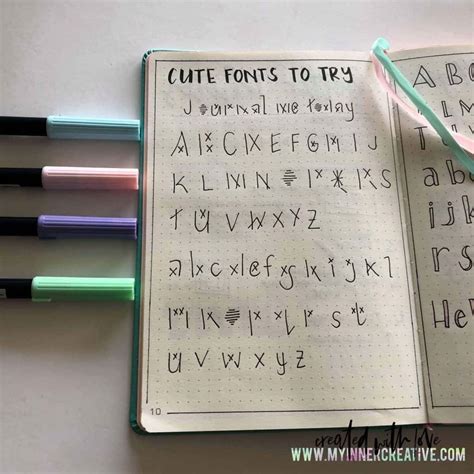 CUTE FONTS TO TRY
Journal today
A B C D E F G H I J
K L M N O P Q R S
T U V W X Y Z
a b c d e f g h i j k l
m n o p q r s t
u v w x y z
10
A B C
a b
i j k
r s
He
created with love
WWW.MYINNERCREATIVE.COM